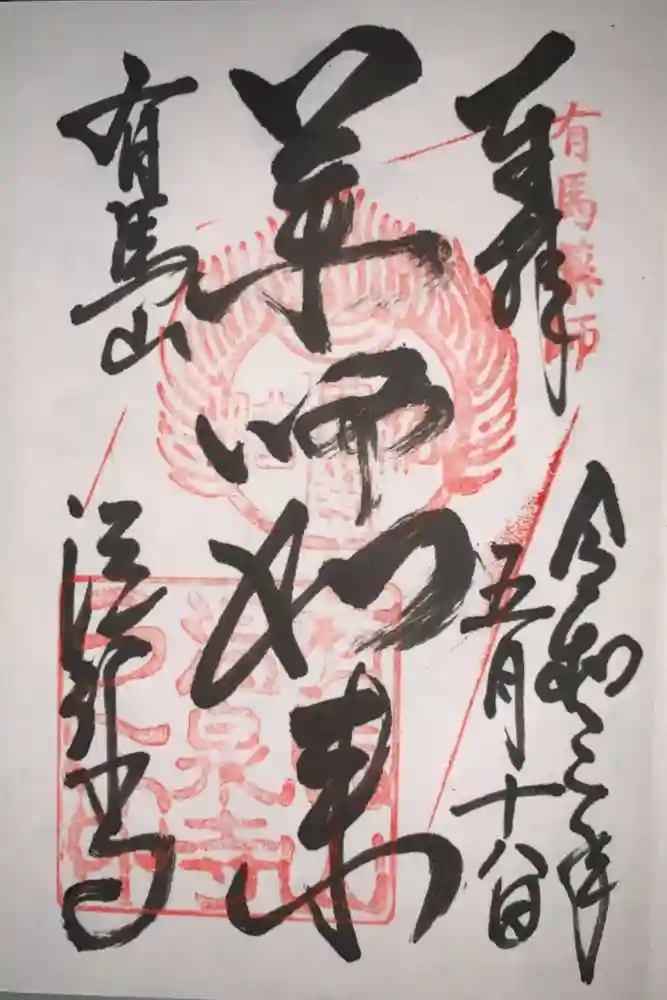 有馬薬師
奉拝
令和三年
五月十八日
薬師如来
有馬山
温泉寺